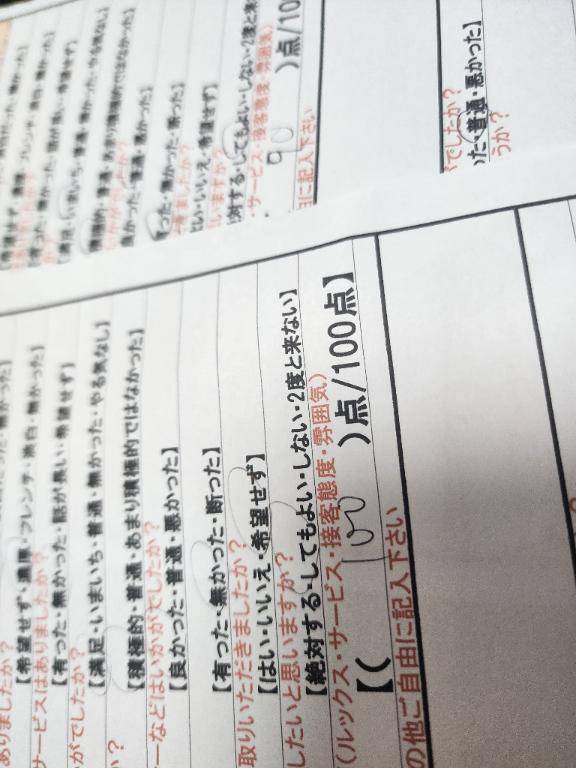 ありましたか?
【希望せず・濃厚・フレンチ・淡白・無かった】
サービスはありましたか?
【有った・無かった・話が良い・希望せず】
がでしたか?
【満足・いまいち・普通・無かった・やる気なし】
か?
【積極的・普通・あまり積極的ではなかった】
ーなどはいかがでしたか?
【良かった・普通・悪かった】
【有った・無かった・断った】
取りいただきましたか?
【はい・いいえ・希望せず】
したいと思いますか?
【絶対する・してもよい・しない・2度と来ない】
(ルックス・サービス・接客態度・雰囲気)
【( 100 )点/100点】
の他ご自由に記入下さい
積極的・普通・あまり積極的ではなかった】
良かった・普通・悪かった】
有った・無かった・断った】
きましたか?
はい・いいえ・希望せず】
いますか?
対する・してもよい・しない・2度と来
・サービス・接客態度・雰囲気)
90 )点/10
由に記入下さい
がでしたか?
った・普通・悪かった】
うか?